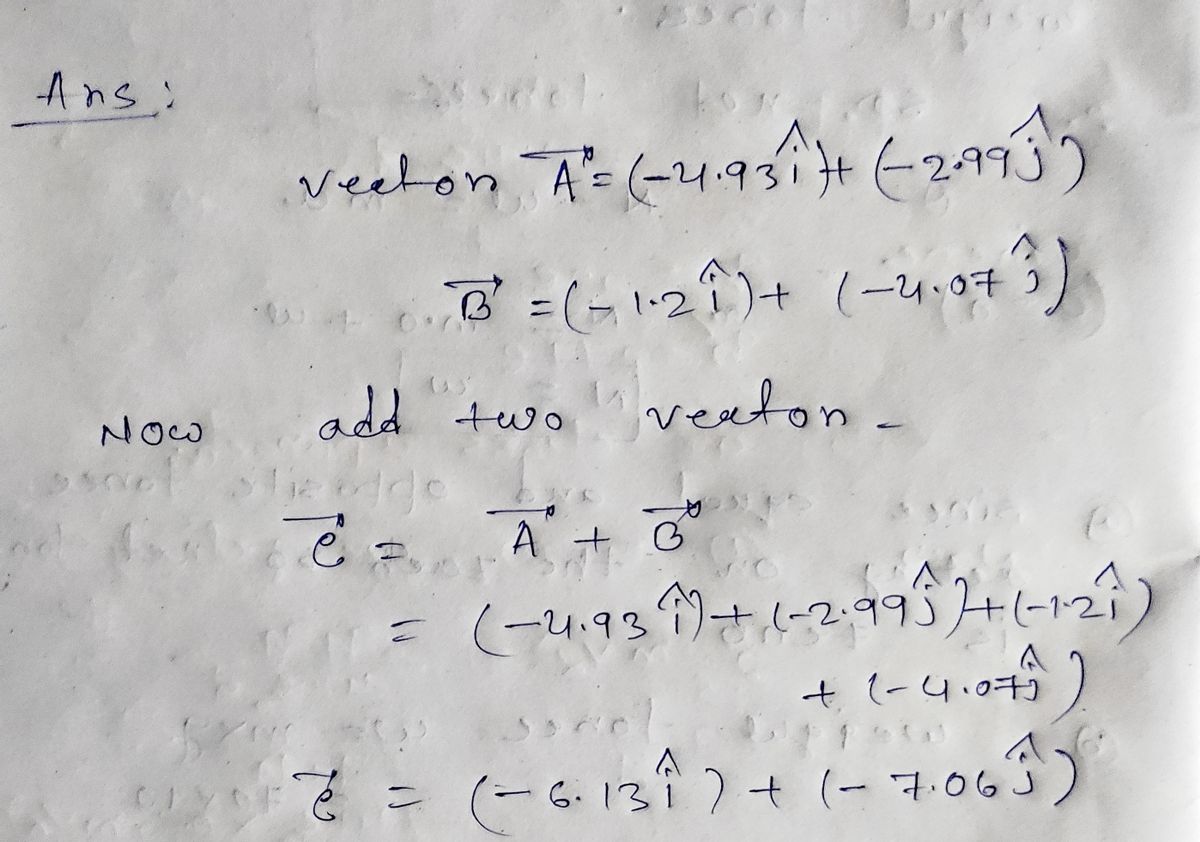 Ans:
vector A⃗ = (-4.93î) + (-2.99ĵ)
B⃗ = (-1.2î) + (-4.07ĵ)
Now add two vector -
C⃗ = A⃗ + B⃗
= (-4.93î) + (-2.99ĵ) + (-1.2î)
+ (-4.07ĵ)
C⃗ = (-6.13î) + (-7.06ĵ)